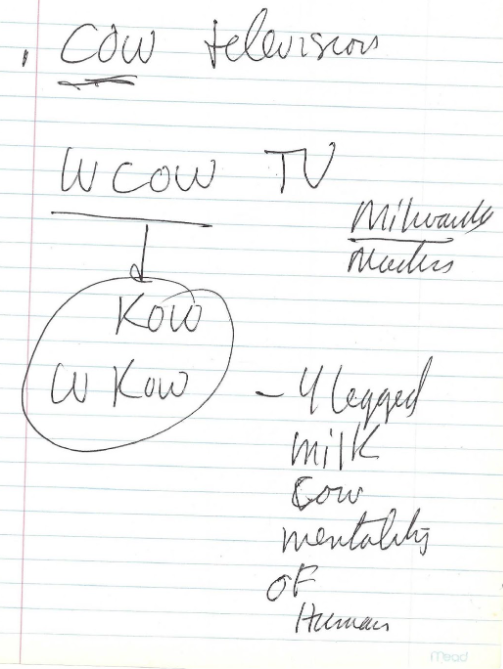 Cow television
W COW TV
Milwaukee
Kow
W Kow
- 4 legged
milk
cow
mentality
of
Human
Mead